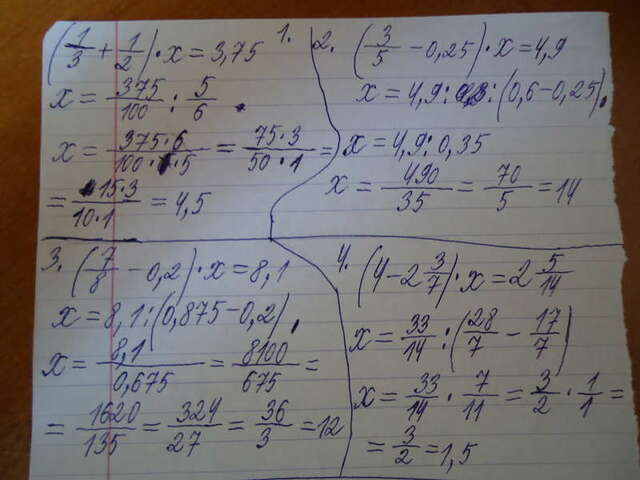 1. (1/3 + 1/2) · x = 3,75
x = 375/100 : 5/6
x = 375·6/100·5 = 75·3/50·1 =
= 15·3/10·1 = 4,5
2. (3/5 - 0,25) · x = 4,9
x = 4,9 : (0,6 - 0,25)
x = 4,9 : 0,35
x = 490/35 = 70/5 = 14
3. (7/8 - 0,2) · x = 8,1
x = 8,1 : (0,875 - 0,2)
x = 8,1/0,675 = 8100/675 =
= 1620/135 = 324/27 = 36/3 = 12
4. (4 - 2 3/7) · x = 2 5/14
x = 33/14 : (28/7 - 17/7)
x = 33/14 · 7/11 = 3/2 · 1/1 =
= 3/2 = 1,5